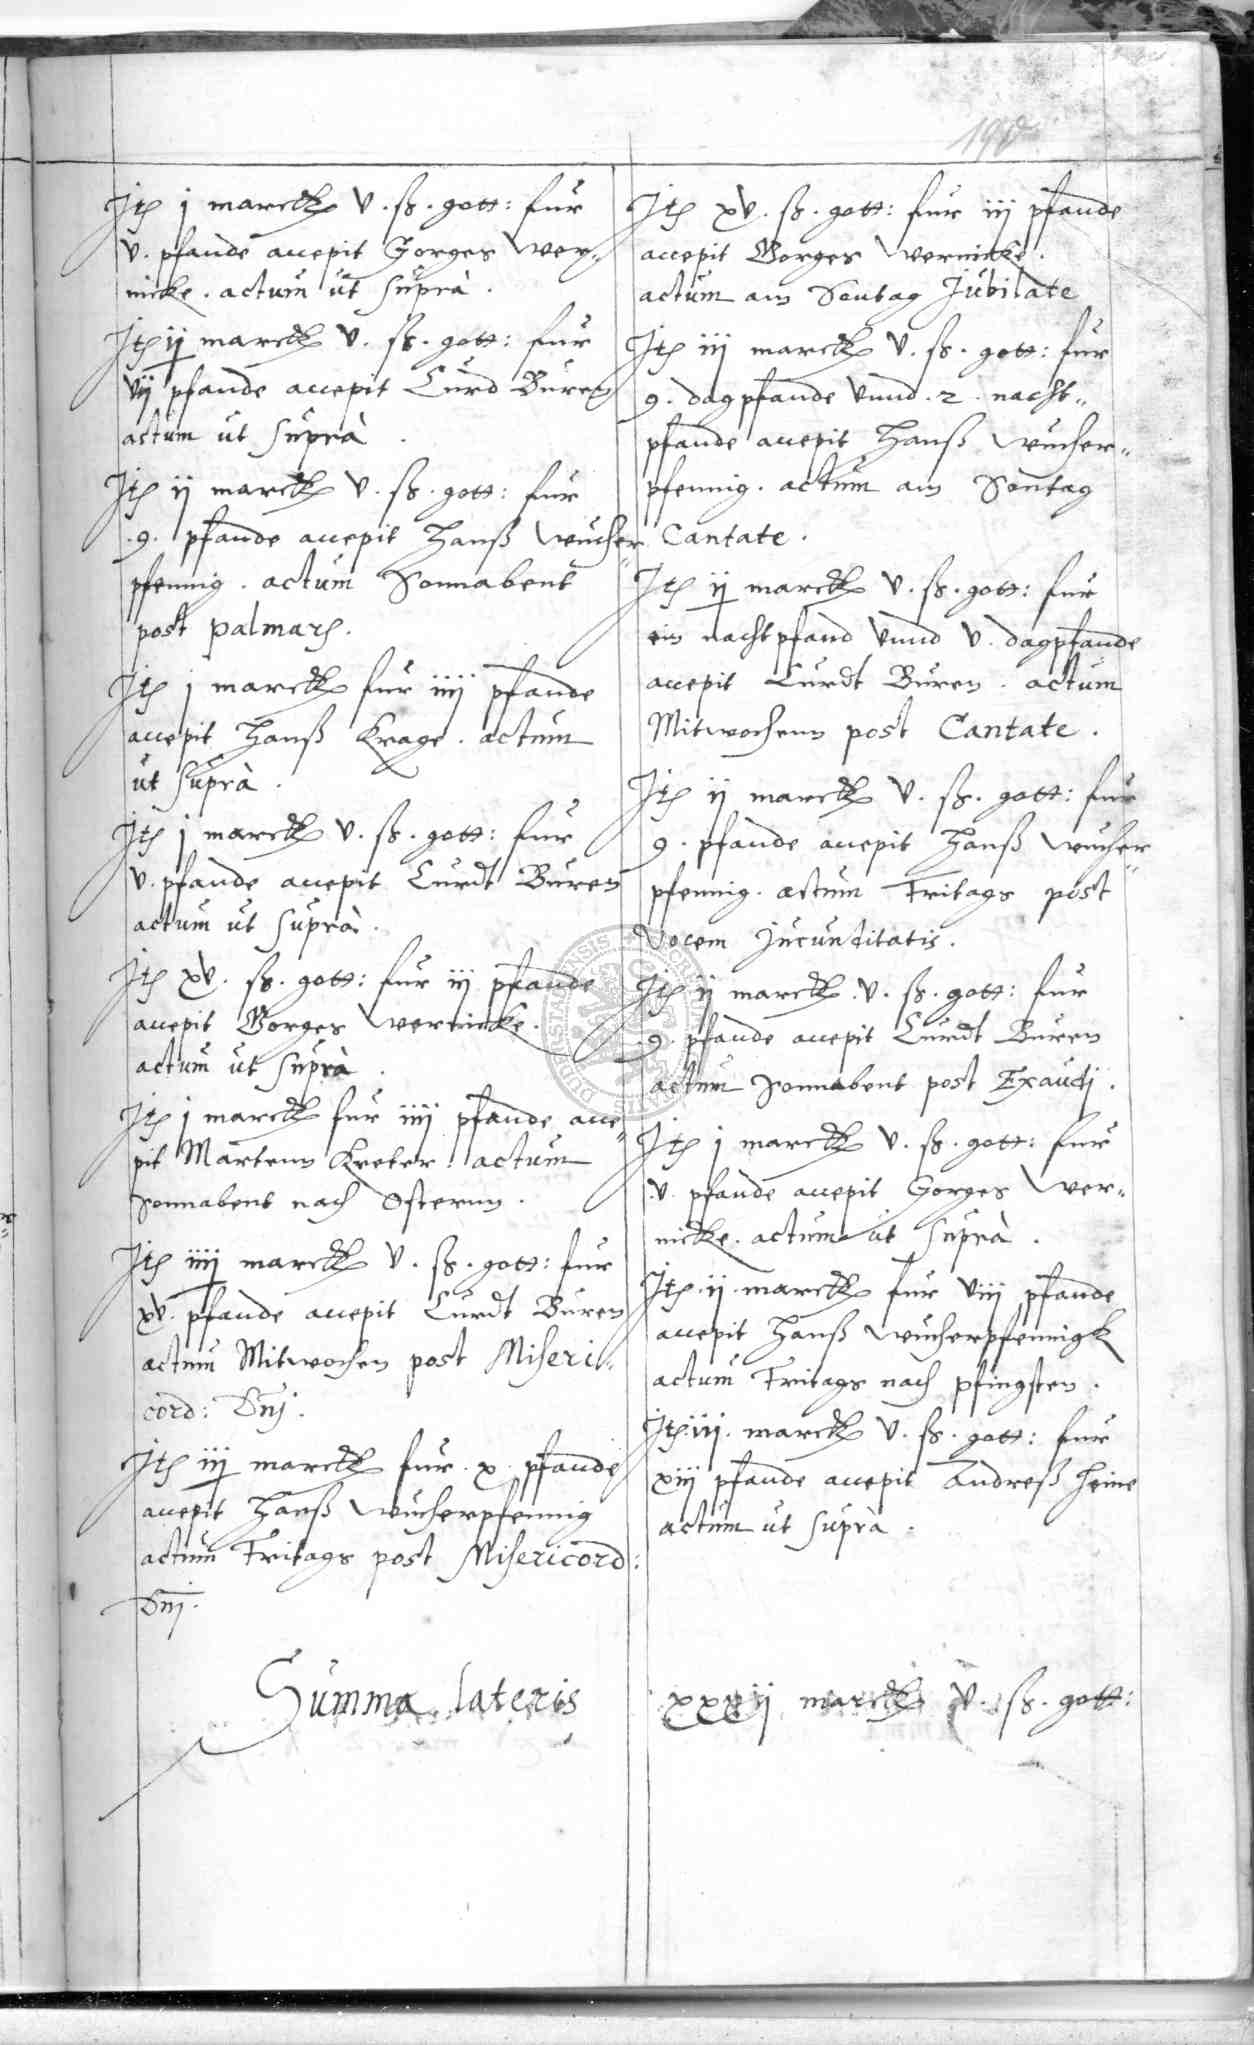 Jtem j marck v. ß. gott: fur
v. pfande accepit Gorges Wer„
nicke. actum ut suprà.
Jtem ij marck v. ß. gott: fur
vij pfande accepit Curd Buren
actum ut suprà.
Jtem ij marck v. ß. gott: fur
.9. pfande accepit Hanß Wucher„
pfennig. actum Sonnabent
post palmarum.
Jtem j marck fur iiij pfande
accepit Hanß Krage. actum
ut suprà.
Jtem j marck v. ß. gott: fur
v. pfande accepit Curdt Buren
actum ut suprà.
Jtem xv. ß. gott: fur iij pfande
accepit Gorges Wernicke.
actum ut suprà.
Jtem j marck fur iiij pfande acce„
pit Martenn Kreter. actum
Sonnabent nach Osternn.
Jtem iiij marck v. ß. gott: fur
xv. pfande accepit Curdt Buren
actum Mitwochen post Miseri„
cord: Dnj.
Jtem iij marck fur .x. pfande
accepit Hanß Wucherpfennig
actum Fritags post Misericord:
Dnj.
Jtem xv. ß. gott: fur iij pfande
accepit Gorges Wernicke.
actum am Sontag Jubilate
Jtem iij marck v. ß. gott: fur
9. dagpfande vnnd .2. nacht„
pfande accepit Hanß Wucher„
pfennig. actum am Sontag
Cantate.
Jtem ij marck v. ß. gott: fur
ein nachtpfand vnnd v. dagpfande
accepit Curdt Buren. actum
Mitwochenn post Cantate.
Jtem ij marck v. ß. gott: fur
9. pfande accepit Hanß Wucher„
pfennig. actum Fritags post
Vocem Jucunditatis.
Jtem ij marck .v. ß. gott: fur
.9. pfande accepit Curdt Buren
actum Sonnabent post Exaudj.
Jtem j marck v. ß. gott: fur
.v. pfande accepit Gorges Wer„
nicke. actum ut suprà.
Jtem .ij. marck fur viij pfande
accepit Hanß Wucherpfennigk
actum Fritags nach pfingsten.
Jtem iij. marck v. ß. gott: fur
xiij pfande accepit Andreß Heine
actum ut suprà.
Summa lateris xxxij marck v. ß. gott: